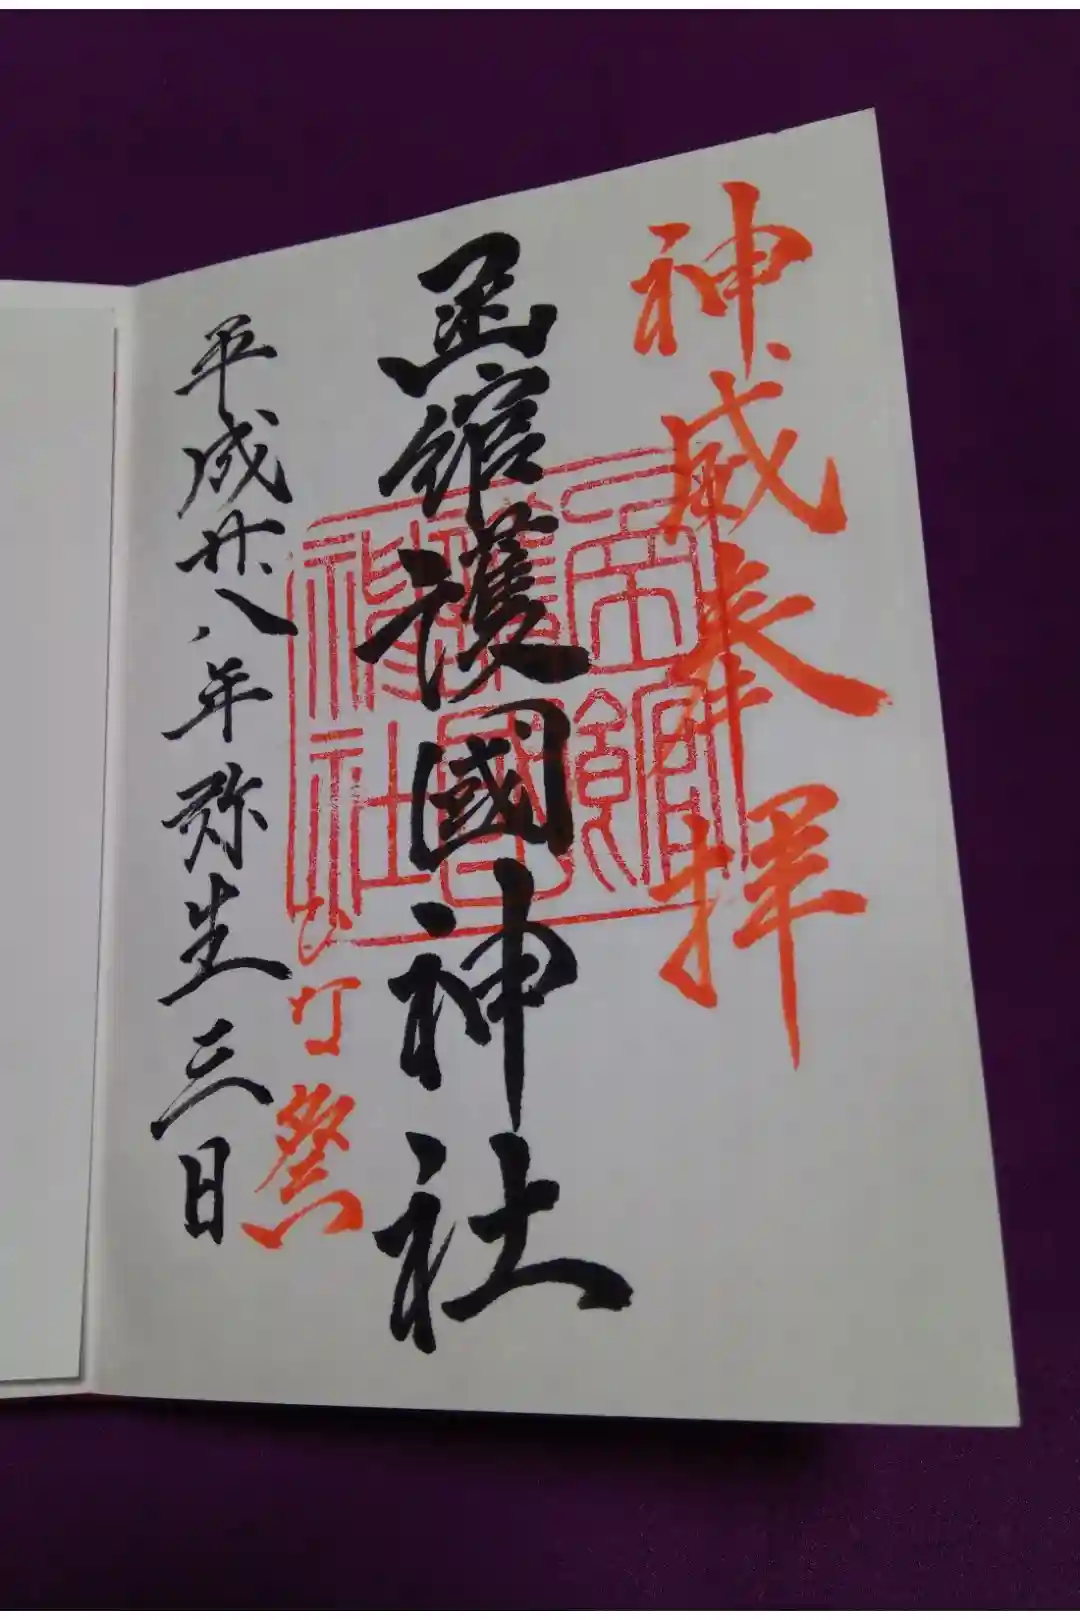 神威奉拝
函館護國神社
函館
護國
神社
ひな祭
平成廿八年弥生三日